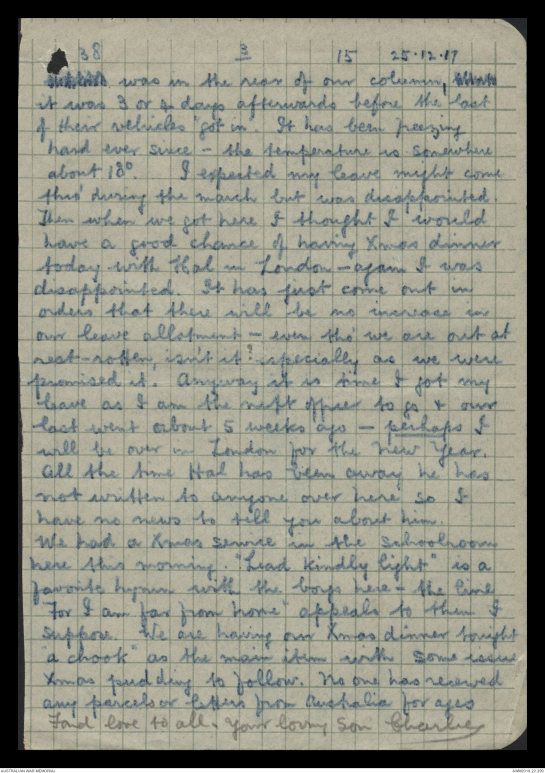 38 3 15 25.12.17
was in the rear of our column,
it was 3 or 4 days afterwards before the last
of their vehicles 'got in'. It has been freezing
hard ever since – the temperature is somewhere
about 18°. I expected my leave might come
thro' during the march but was disappointed.
Then when we got here I thought I would
have a good chance of having Xmas dinner
today with Hal in London – again I was
disappointed. It has just come out in
orders that there will be no increase in
our leave allotment – even tho' we are out at
rest – rotten, isn't it? especially as we were
promised it. Anyway it is time I got my
leave as I am the next officer to go & our
last went about 5 weeks ago – perhaps I
will be over in London for the New Year.
All the time Hal has been away he has
not written to anyone over here so I
have no news to tell you about him.
We had a Xmas service in the schoolroom
here this morning. "Lead kindly light" is a
favorite hymn with the boys here – the line
"For I am far from home" appeals to them I
suppose. We are having our Xmas dinner tonight
"a chook" as the main item with some issue
Xmas pudding to follow. No one has received
any parcels or letters from Australia for ages
Fond love to all. Your loving son Charlie
AUSTRALIAN WAR MEMORIAL